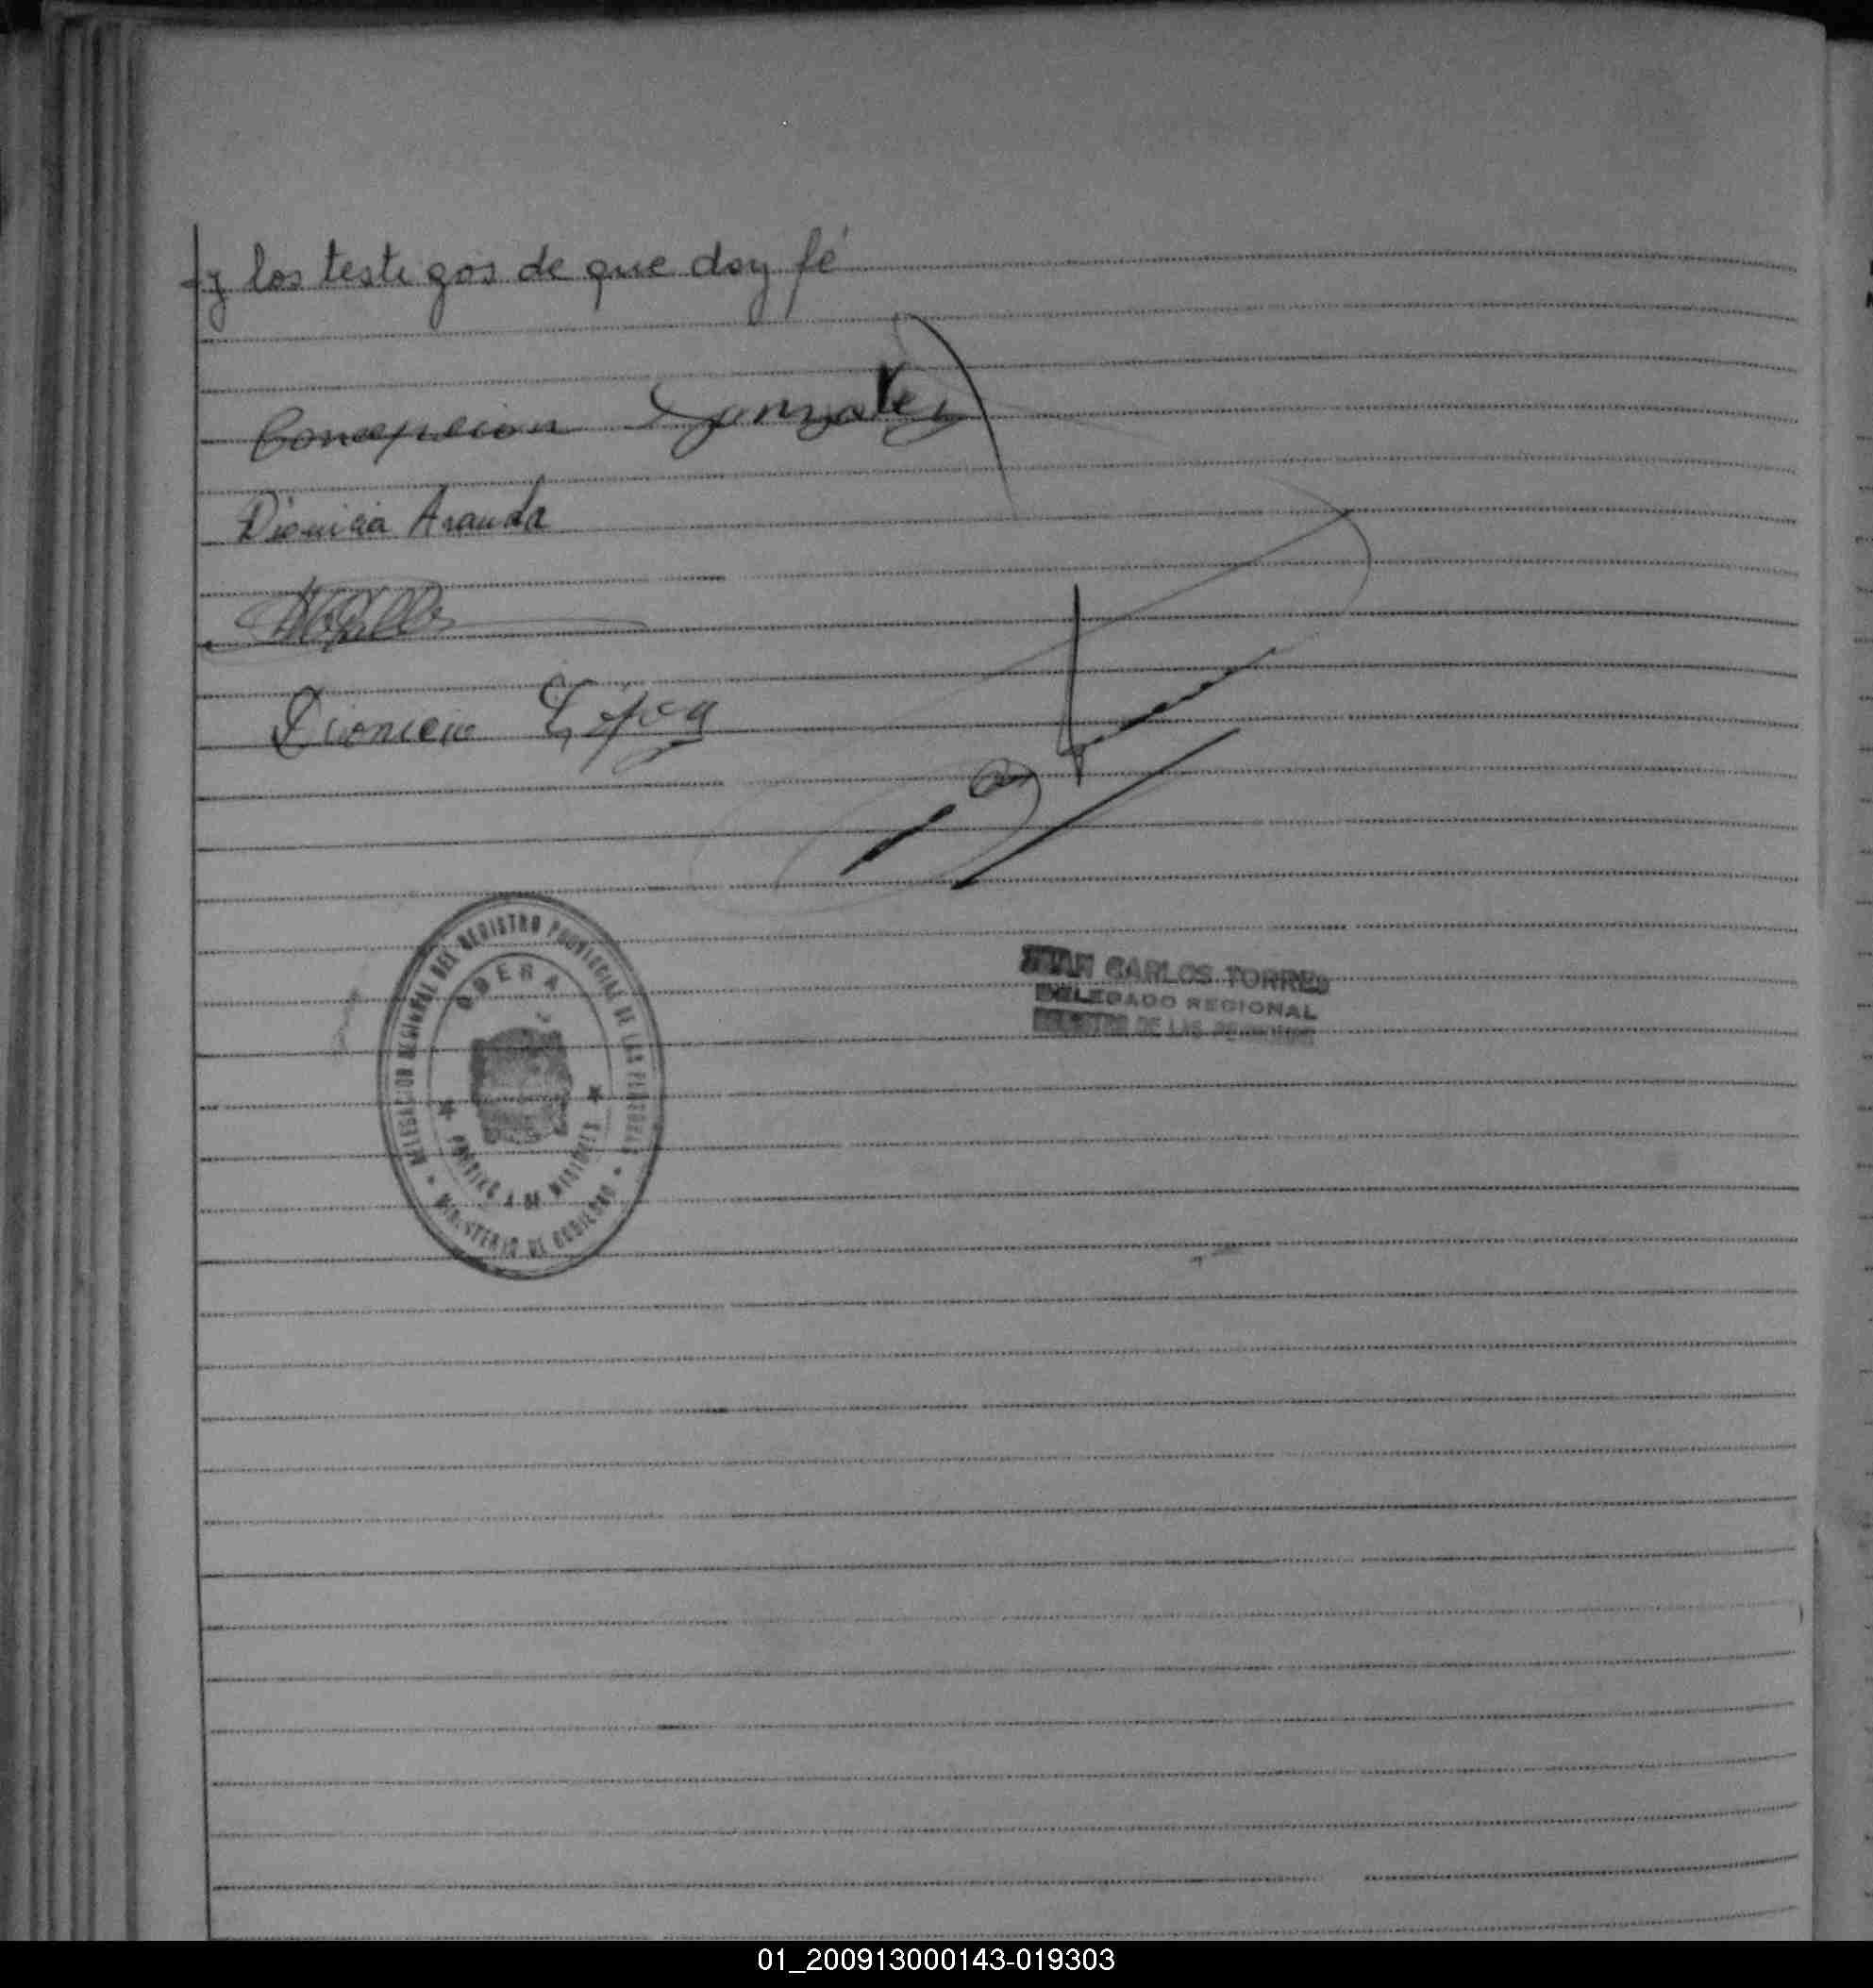 y los testigos de que doy fé
Concepcion Gonzalez
Dionicia Aranda
Dionicio López
DELEGACION REGIONAL DEL REGISTRO PROVINCIAL DE LAS PERSONAS
OBERA
PROVINCIA DE MISIONES
MINISTERIO DE GOBIERNO
JUAN CARLOS TORRES
DELEGADO REGIONAL
REGISTRO DE LAS PERSONAS
01_200913000143-019303